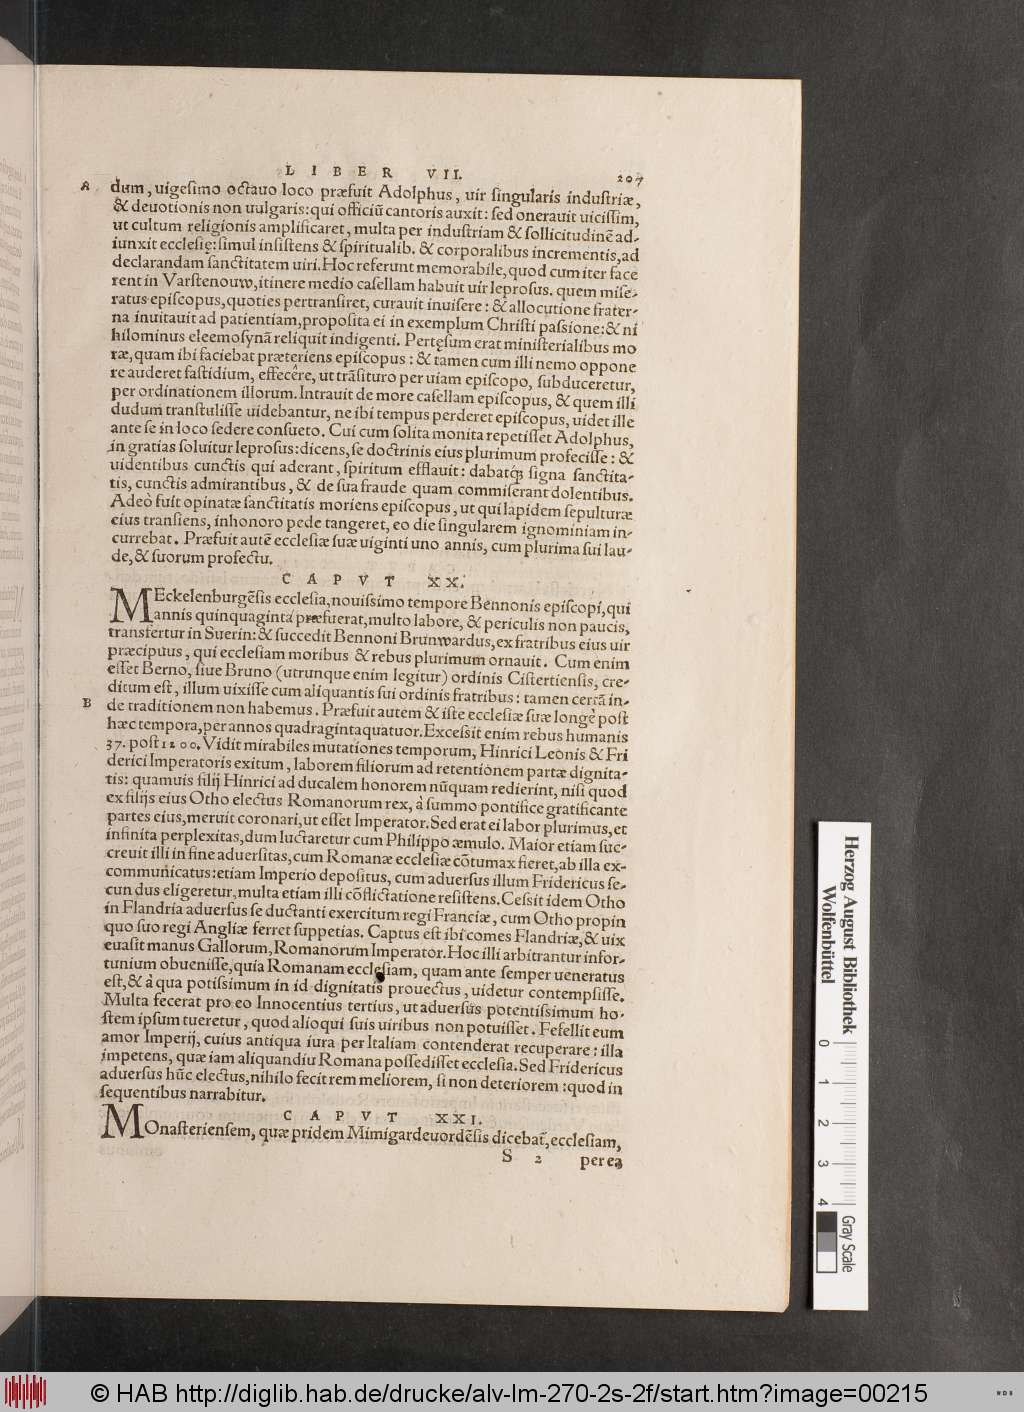 LIBER VII. 207
A dum, uigesimo octauo loco præfuit Adolphus, uir singularis industriæ,
& deuotionis non uulgaris: qui officiũ cantoris auxit: sed onerauit uicissim,
ut cultum religionis amplificaret, multa per industriam & sollicitudinẽ ad-
iunxit ecclesię: simul insistens & spiritualib. & corporalibus incrementis, ad
declarandam sanctitatem uiri. Hoc referunt memorabile, quod cum iter face
rent in Varstenouw, itinere medio casellam habuit uir leprosus. quem mise-
ratus episcopus, quoties pertransiret, curauit inuisere: & allocutione frater-
na inuitauit ad patientiam, proposita ei in exemplum Christi passione: & ni
hilominus eleemosynã reliquit indigenti. Pertęsum erat ministerialibus mo
ræ, quam ibi faciebat præteriens episcopus: & tamen cum illi nemo oppone
re auderet fastidium, effecêre, ut trãsituro per uiam episcopo, subduceretur,
per ordinationem illorum. Intrauit de more casellam episcopus, & quem illi
dudum transtulisse uidebantur, ne ibi tempus perderet episcopus, uidet ille
ante se in loco sedere consueto. Cui cum solita monita repetisset Adolphus,
in gratias soluitur leprosus: dicens, se doctrinis eius plurimum profecisse: &
uidentibus cunctis qui aderant, spiritum efflauit: dabatq́ signa sanctita-
tis, cunctis admirantibus, & de sua fraude quam commiserant dolentibus.
Adeò fuit opinatæ sanctitatis moriens episcopus, ut qui lapidem sepulturæ
eius transiens, inhonoro pede tangeret, eo die singularem ignominiam in-
currebat. Præfuit autẽ ecclesiæ suæ uiginti uno annis, cum plurima sui lau-
de, & suorum profectu.
CAPVT XX.
MEckelenburgẽsis ecclesia, nouissimo tempore Bennonis episcopi, qui
annis quinquaginta præfuerat, multo labore, & periculis non paucis,
transfertur in Suerin: & succedit Bennoni Brunwardus, ex fratribus eius uir
præcipuus, qui ecclesiam moribus & rebus plurimum ornauit. Cum enim
esset Berno, siue Bruno (utrunque enim legitur) ordinis Cistertiensis, cre-
ditum est, illum uixisse cum aliquantis sui ordinis fratribus: tamen certã in-
B de traditionem non habemus. Præfuit autem & iste ecclesiæ suæ longè post
hæc tempora, per annos quadragintaquatuor. Excessit enim rebus humanis
37. post 1200. Vidit mirabiles mutationes temporum, Hinrici Leonis & Fri
derici Imperatoris exitum, laborem filiorum ad retentionem partæ dignita-
tis: quamuis filij Hinrici ad ducalem honorem nũquam redierint, nisi quod
ex filijs eius Otho electus Romanorum rex, à summo pontifice gratificante
partes eius, meruit coronari, ut esset Imperator. Sed erat ei labor plurimus, et
infinita perplexitas, dum luctaretur cum Philippo æmulo. Maior etiam suc-
creuit illi in fine aduersitas, cum Romanæ ecclesiæ cõtumax fieret, ab illa ex-
communicatus: etiam Imperio depositus, cum aduersus illum Fridericus se-
cun dus eligeretur, multa etiam illi cõflictatione resistens. Cessit idem Otho
in Flandria aduersus se ductanti exercitum regi Franciæ, cum Otho propin
quo suo regi Angliæ ferret suppetias. Captus est ibi comes Flandriæ, & uix
euasit manus Gallorum, Romanorum Imperator. Hoc illi arbitrantur infor-
tunium obuenisse, quia Romanam ecclesiam, quam ante semper ueneratus
est, & à qua potissimum in id dignitatis prouectus, uidetur contempsisse.
Multa fecerat pro eo Innocentius tertius, ut aduersus potentissimum ho-
stem ipsum tueretur, quod alioqui suis uiribus non potuisset. Fefellit eum
amor Imperij, cuius antiqua iura per Italiam contenderat recuperare: illa
impetens, quæ iam aliquandiu Romana possedisset ecclesia. Sed Fridericus
aduersus hũc electus, nihilo fecit rem meliorem, si non deteriorem: quod in
sequentibus narrabitur.
CAPVT XXI.
MOnasteriensem, quæ pridem Mimigardeuordẽsis dicebat̃, ecclesiam,
S 2 per ea
Herzog August Bibliothek
Wolfenbüttel
0 1 2 3 4
Gray Scale
© HAB http://diglib.hab.de/drucke/alv-lm-270-2s-2f/start.htm?image=00215